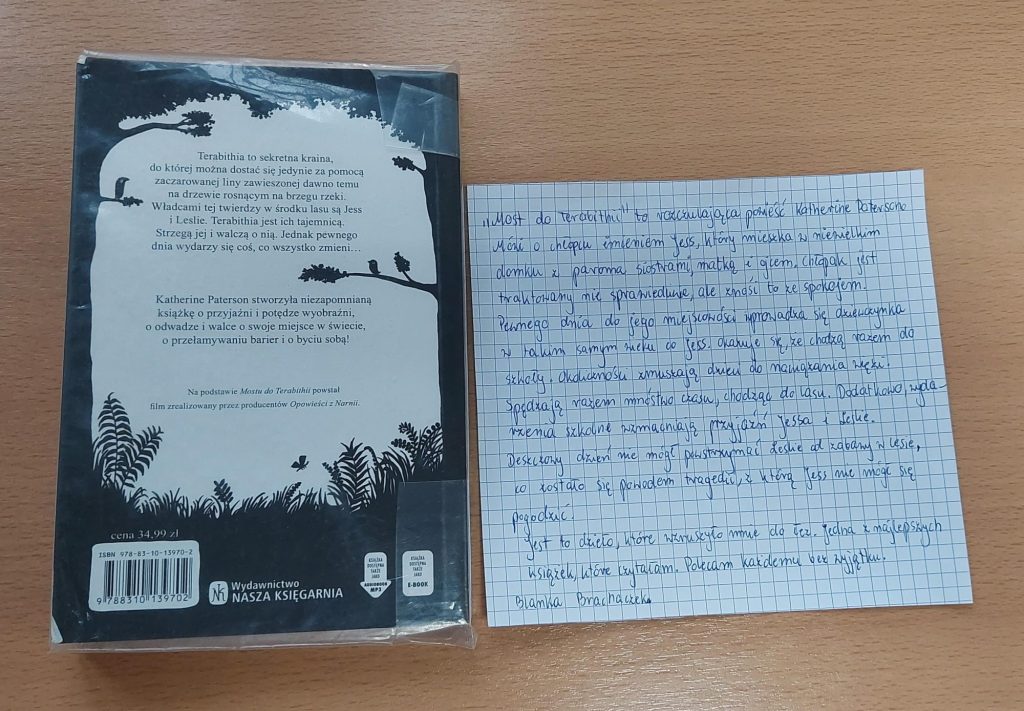 Terabithia to sekretna kraina,
do której można dostać się jedynie za pomocą
zaczarowanej liny zawieszonej dawno temu
na drzewie rosnącym na brzegu rzeki.
Władcami tej twierdzy w środku lasu są Jess
i Leslie. Terabithia jest ich tajemnicą.
Strzegą jej i walczą o nią. Jednak pewnego
dnia wydarzy się coś, co wszystko zmieni...
Katherine Paterson stworzyła niezapomnianą
książkę o przyjaźni i potędze wyobraźni,
o odwadze i walce o swoje miejsce w świecie,
o przełamywaniu barier i o byciu sobą!
Na podstawie Mostu do Terabithii powstał
film zrealizowany przez producentów Opowieści z Narnii.
cena 34,99 zł
ISBN 978-83-10-13970-2
9788310139702
Wydawnictwo
NASZA KSIĘGARNIA
KSIĄŻKA
DOSTĘPNA
TAKŻE
JAKO
AUDIOBOOK
MP3
KSIĄŻKA
DOSTĘPNA
TAKŻE
JAKO
E-BOOK
„Most do Terabithii" to rozczulająca powieść Katherine Paterson.
Mówi o chłopcu imieniem Jess, który mieszka w niewielkim
domku z paroma siostrami, matką i ojcem. Chłopak jest
traktowany nie sprawiedliwie, ale znosi to ze spokojem.
Pewnego dnia do jego miejscowości wprowadza się dziewczynka
w takim samym wieku co Jess. Okazuje się, że chodzą razem do
szkoły. Okoliczności zmuszają dzieci do nawiązania więzi.
Spędzają razem mnóstwo czasu, chodząc do lasu. Dodatkowo, wyda-
rzenia szkolne wzmacniają przyjaźń Jessa i Leslie.
Deszczowy dzień nie mógł powstrzymać Leslie od zabawy w lesie,
co zostało się powodem tragedii, z którą Jess nie może się
pogodzić.
Jest to dzieło, które wzruszyło mnie do łez. Jedna z najlepszych
książek, które czytałam. Polecam każdemu bez wyjątku.
Blanka Brachaczek